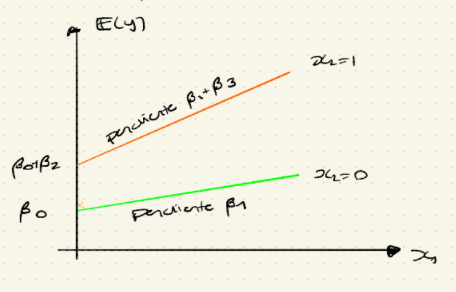 E(y)
x₂=1
pendiente β₁+β₃
β₀+β₂
x₂=0
β₀
pendiente β₁
x₁